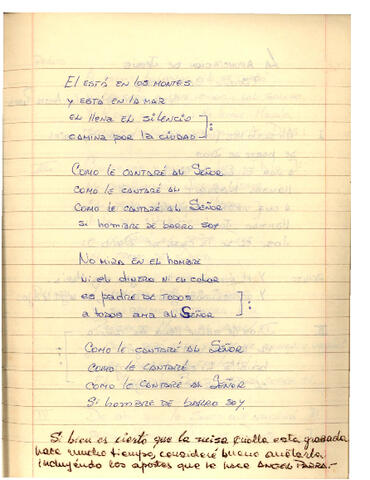 El está en los montes
y está en la mar
el llena el silencio
camina por la ciudad
Como le cantaré al Señor
como le cantaré al
como le cantaré al Señor
si hombre de barro soy
No mira en el hombre
Ni el dinero ni el color
es padre de todos
a todos ama al Señor
Como le cantaré al Señor
Como le cantaré
Como le cantaré al Señor
Si hombre de barro soy.
Si bien es cierto que la misa criolla esta grabada
hace mucho tiempo, consideré bueno anotarla
incluyendo los aportes que le hace ANGEL PARRA.-